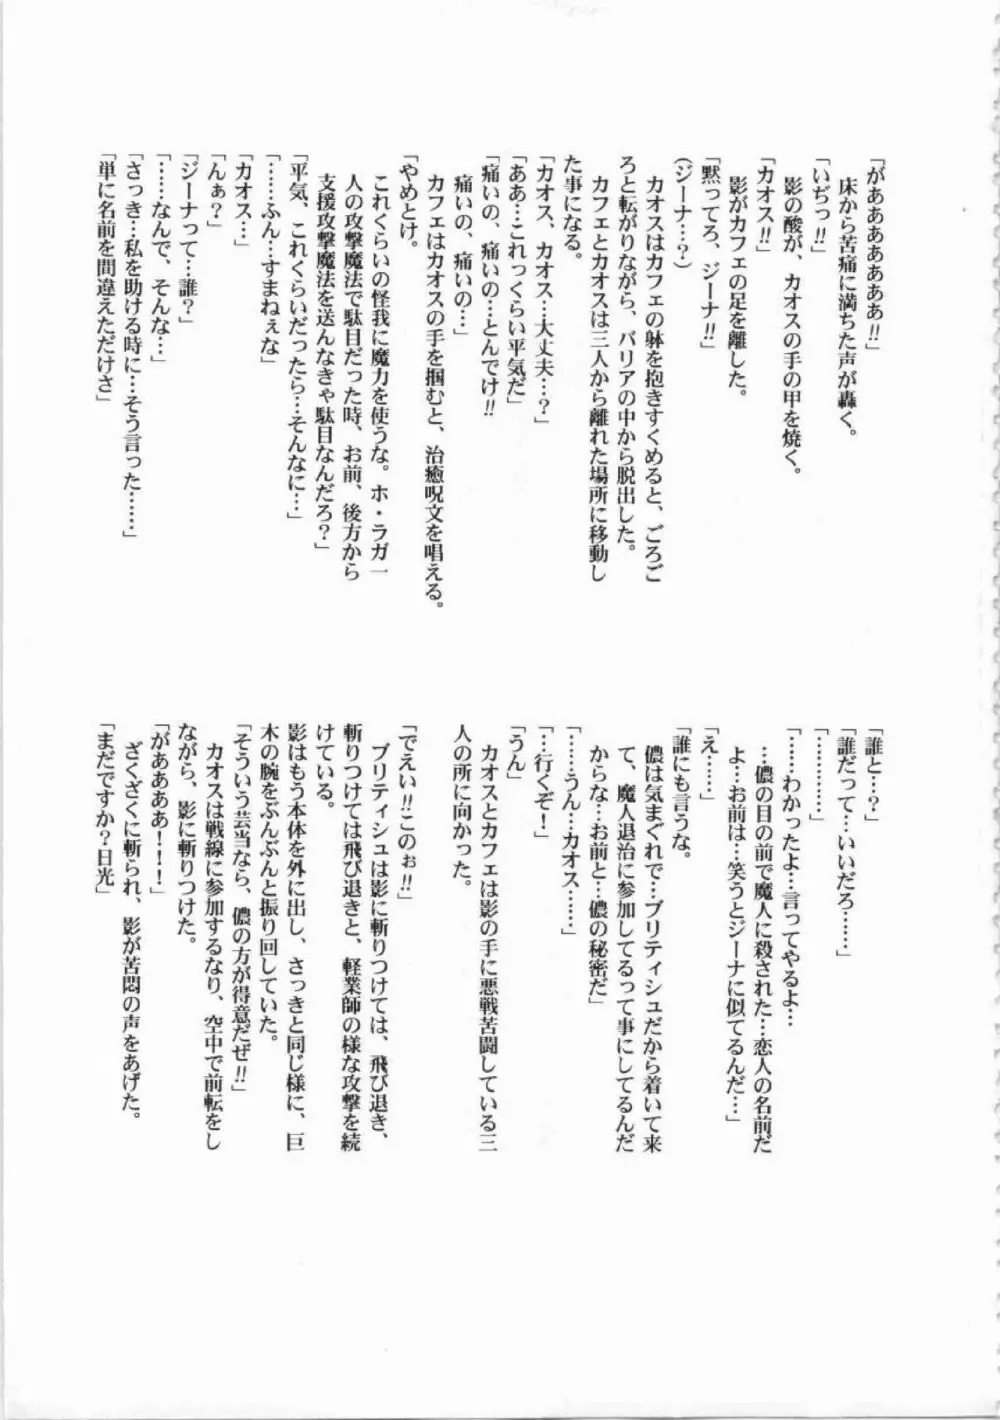 「がああああああぁ!!」
床から苦痛に満ちた声が轟く。
「いぢっ!!」
影の酸が、カオスの手の甲を焼く。
「カオス!!」
影がカフェの足を離した。
「黙ってろ、ジーナ!!」
(ジーナ…?)
カオスはカフェの躰を抱きすくめると、ごろご
ろと転がりながら、バリアの中から脱出した。
カフェとカオスは三人から離れた場所に移動し
た事になる。
「カオス、カオス…大丈夫…?」
「ああ…これっくらい平気だ」
「痛いの、痛いの…とんでけ!!
痛いの、痛いの…」
カフェはカオスの手を掴むと、治癒呪文を唱える。
「やめとけ。
これくらいの怪我に魔力を使うな。ホ・ラガ一
人の攻撃魔法で駄目だった時、お前、後方から
支援攻撃魔法を送んなきゃ駄目なんだろ?」
「平気、これくらいだったら…そんなに…」
「……ふん…すまねぇな」
「カオス…」
「んぁ?」
「ジーナって…誰?」
「……なんで、そんな…」
「さっき…私を助ける時に…そう言った……」
「単に名前を間違えただけさ」
「誰と…?」
「誰だって…いいだろ……」
「…………」
「……わかったよ…言ってやるよ…
…儂の目の前で魔人に殺された…恋人の名前だ
よ…お前は…笑うとジーナに似てるんだ…」
「え……」
「誰にも言うな。
儂は気まぐれで…ブリティシュだから着いて来
て、魔人退治に参加してるって事にしてるんだ
からな…お前と…儂の秘密だ」
「……うん…カオス……」
「…行くぞ!」
「うん」
カオスとカフェは影の手に悪戦苦闘している三
人の所に向かった。
「でえい!!このぉ!!」
ブリティシュは影に斬りつけては、飛び退き、
斬りつけては飛び退きと、軽業師の様な攻撃を続
けている。
影はもう本体を外に出し、さっきと同じ様に、巨
木の腕をぶんぶんと振り回していた。
「そういう芸当なら、儂の方が得意だぜ!!」
カオスは戦線に参加するなり、空中で前転をし
ながら、影に斬りつけた。
「がああああ!!!」
ざくざくに斬られ、影が苦悶の声をあげた。
「まだですか?日光」